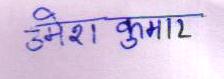 उमेश कुमार